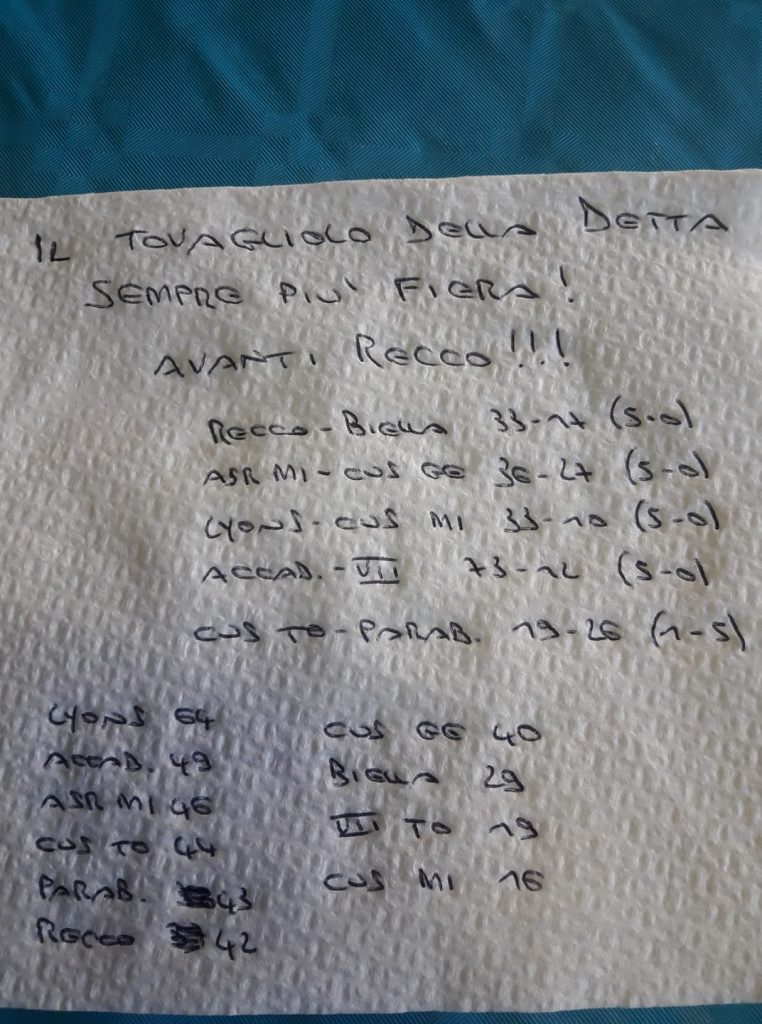 IL TOVAGLIOLO DELLA DETTA
SEMPRE PIU' FIERA!
AVANTI RECCO!!!
RECCO-BIELLA 33-17 (5-0)
ASR MI-CUS GE 36-27 (5-0)
LYONS-CUS MI 33-10 (5-0)
ACCAD.-VII 73-12 (5-0)
CUS TO-PARAB. 19-26 (1-5)
LYONS 64
ACCAD. 49
ASR MI 46
CUS TO 44
PARAB. 43
RECCO 42
CUS GE 40
BIELLA 29
VII TO 19
CUS MI 16